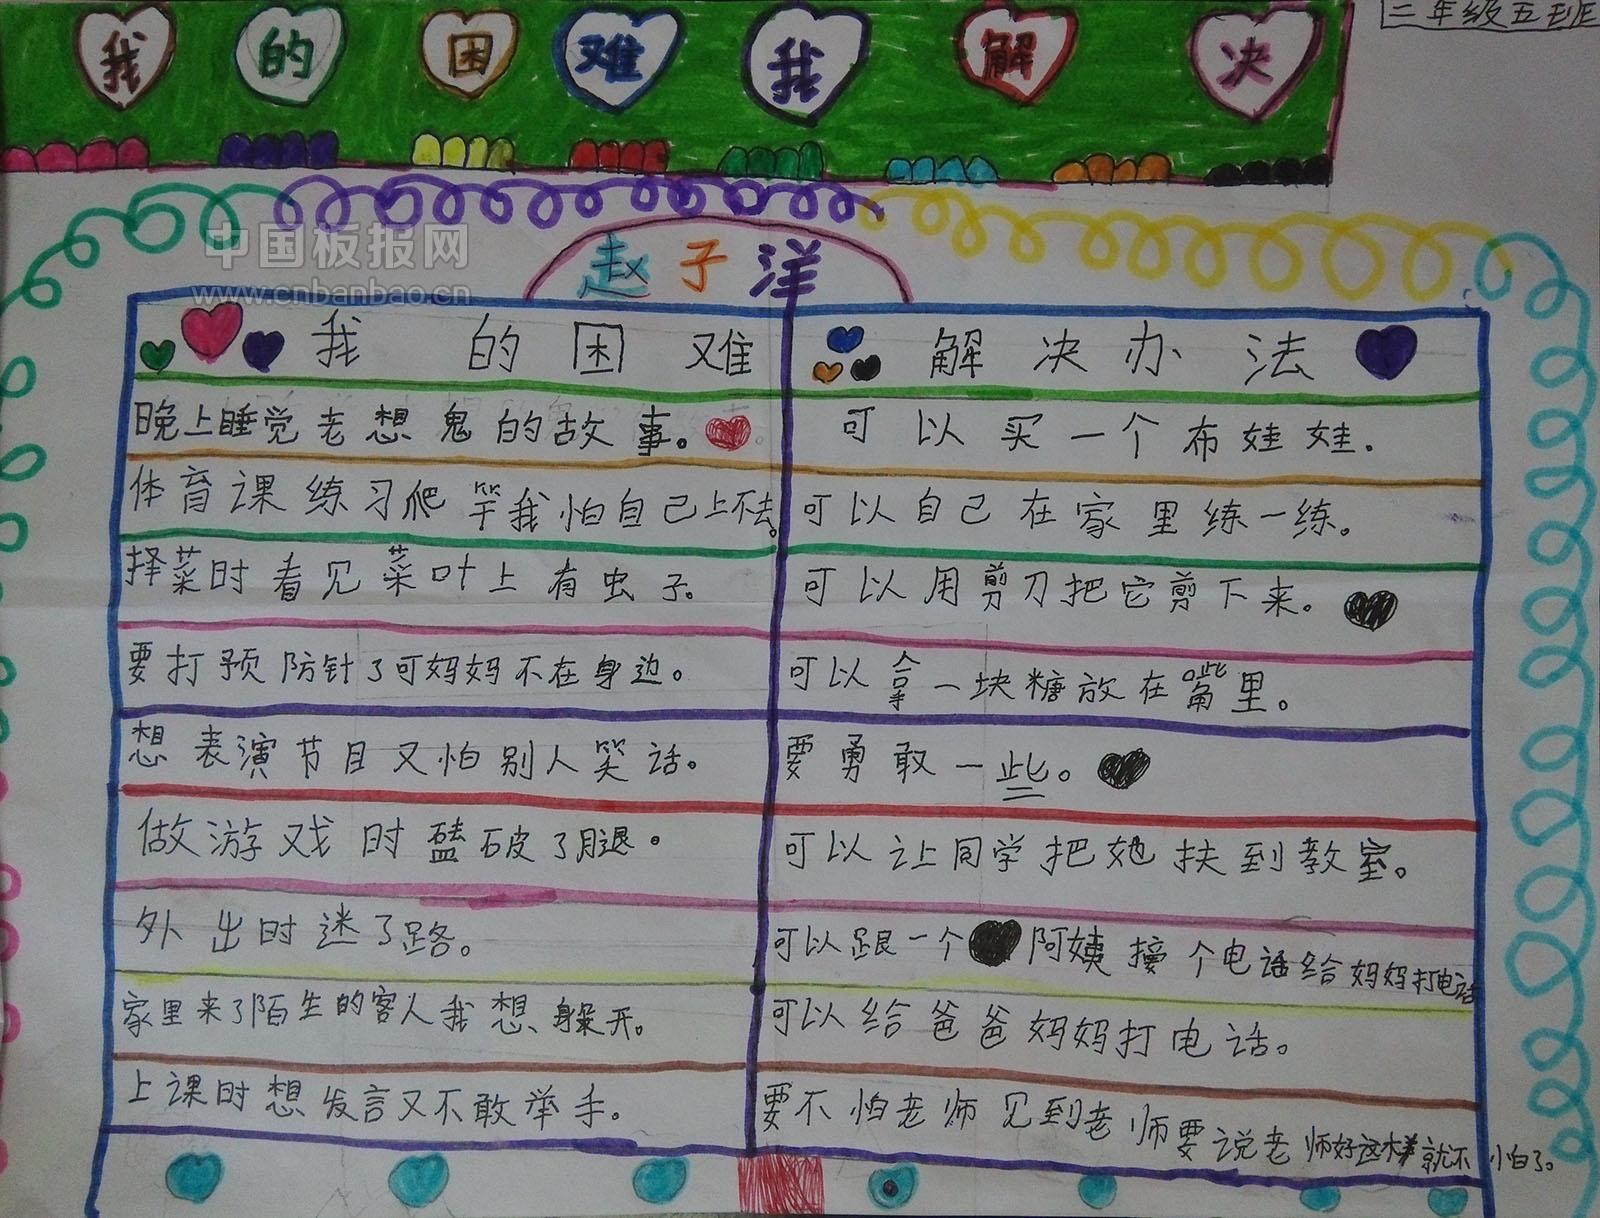 二年级五班
我的困难我解决
中国板报网
www.cnbanbao.cn
赵子洋
我的困难 解决办法
晚上睡觉老想鬼的故事。 可以买一个布娃娃.
体育课练习爬竿我怕自己上不去。 可以自己在家里练一练。
择菜时看见菜叶上有虫子。 可以用剪刀把它剪下来。
要打预防针了可妈妈不在身边。 可以拿一块糖放在嘴里。
想表演节目又怕别人笑话。 要勇敢一些。
做游戏时磕破了腿。 可以让同学把她扶到教室。
外出时迷了路。 可以跟一个阿姨接个电话给妈妈打电话
家里来了陌生的客人我想躲开。 可以给爸爸妈妈打电话。
上课时想发言又不敢举手。 要不怕老师见到老师要说老师好这样就不小白了。